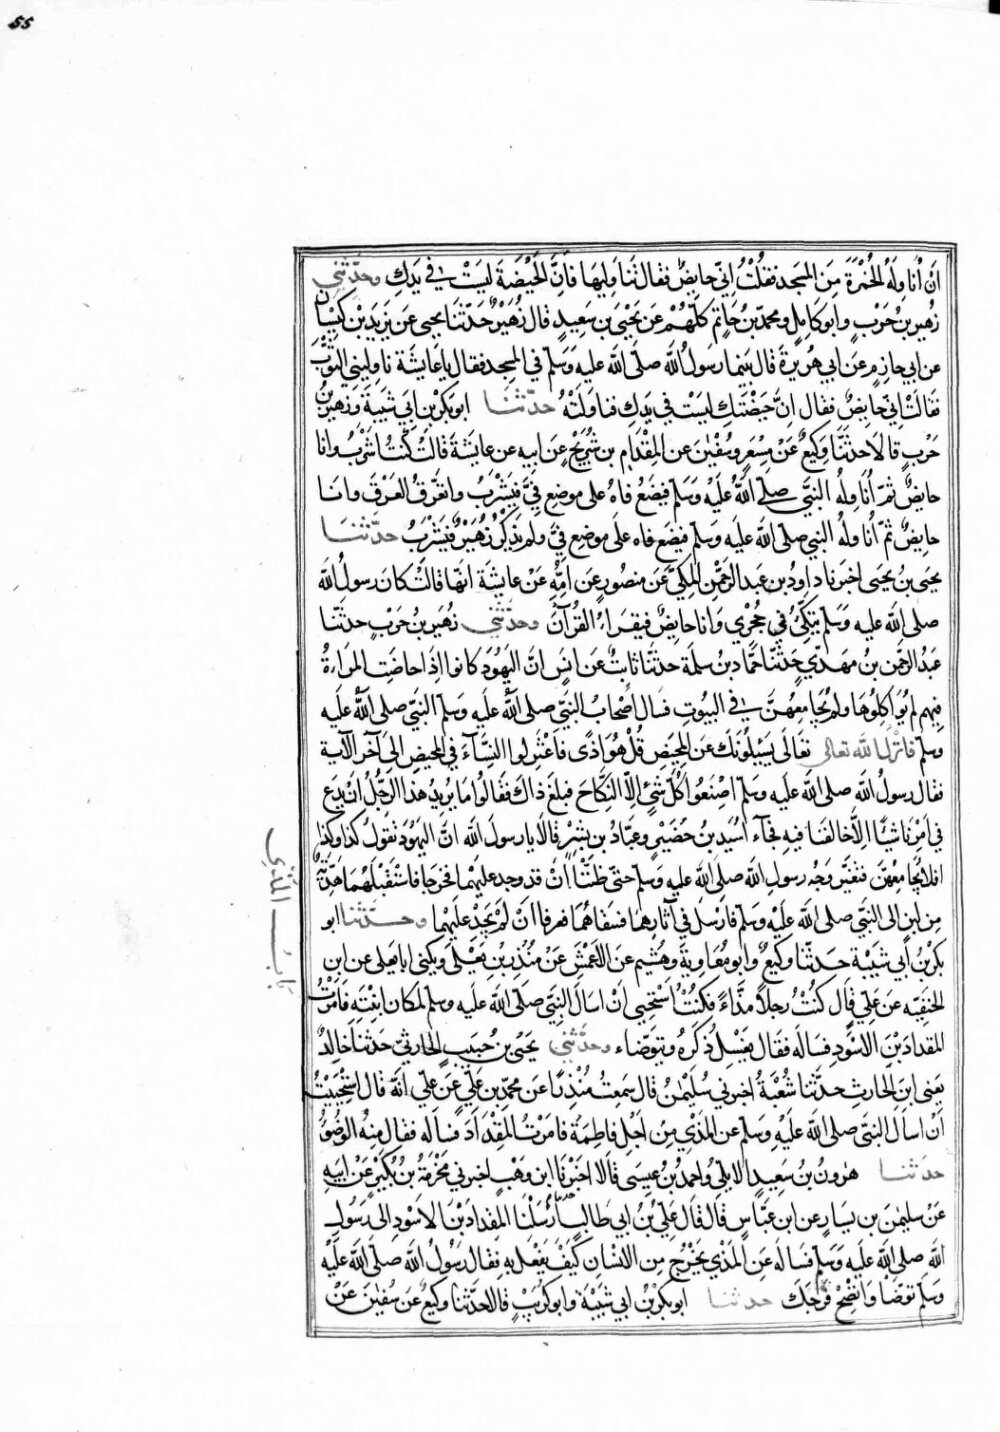 55
ان أناوله الخمرة من المسجد فقلت اني حايض فقال تناوليها فان الحيضة ليست في يدك وحدثني
زهير بن حرب وابو كامل ومحمد بن حاتم كلهم عن يحيى بن سعيد قال زهير حدثنا يحيى عن يزيد بن كيسان
عن ابي حازم عن ابي هريرة قال بينما رسول الله صلى الله عليه وسلم في المسجد فقال يا عايشة ناوليني الثوب
فقالت اني حايض فقال ان حيضتك ليست في يدك فناولته حدثنا ابو بكر بن ابي شيبة وزهير بن
حرب قالا حدثنا وكيع عن مسعر وسفين عن المقدام بن شريح عن ابيه عن عايشة قالت كنت اشرب وانا
حايض ثم أناوله النبي صلى الله عليه وسلم فيضع فاه على موضع في فيشرب واتعرق العرق وانا
حايض ثم أناوله النبي صلى الله عليه وسلم فيضع فاه على موضع في ولم يذكر زهير فيشرب حدثنا
يحيى بن يحيى اخبرنا داود بن عبد الرحمن المكي عن منصور عن امه عن عايشة انها قالت كان رسول الله
صلى الله عليه وسلم يتكئ في حجري وانا حايض فيقراء القرآن وحدثني زهير بن حرب حدثنا
عبد الرحمن بن مهدي حدثنا حماد بن سلمة حدثنا ثابت عن انس ان اليهود كانوا اذا حاضت المراءة
فيهم لم يواكلوها ولم يجامعهن في البيوت فسال اصحاب النبي صلى الله عليه وسلم النبي صلى الله عليه
وسلم فانزل الله تعالى تعالى يسيلونك عن المحيض قل هو اذى فاعتزلوا النساء في المحيض الى آخر الآية
فقال رسول الله صلى الله عليه وسلم اصنعوا كل شئ الا النكاح فبلغ ذاك فقالوا ما يريد هذا الرجل ان يدع
في امرنا شيئا الا خالفنا فيه فجآء اسيد بن حضير وعباد بن بشر فقالا يا رسول الله ان اليهود تقول كذا وكذا
افلا نجامعهن فتغير وجه رسول الله صلى الله عليه وسلم حتى ظننا ان قد وجد عليهما فخرجا فاستقبلهما هدية
من لبن الى النبي صلى الله عليه وسلم فارسل في آثارهما فسقاهما فعرفا ان لم يجد عليهما وحدثنا ابو
بكر بن ابي شيبة حدثنا وكيع وابو معاوية وهشيم عن الاعمش عن منذر بن يعلى ويكنى ابا يعلى عن ابن
الحنفيه عن علي قال كنت رجلا مذاء فكنت استحيي ان اسال النبي صلى الله عليه وسلم لمكان ابنته فامرت
المقداد بن الاسود فساله فقال يغسل ذكره ويتوضاء وحدثني يحيى بن حبيب الحارثي حدثنا خالد
يعنى ابن الحارث حدثنا شعبة اخبرني سليمن قال سمعت منذرا عن محمد بن علي عن علي انه قال استحييت
ان اسال النبي صلى الله عليه وسلم عن المذي من اجل فاطمة فامرت المقداد فساله فقال منه الوضوء
حدثنا هرون بن سعيد الايلي واحمد بن عيسى قالا اخبرنا ابن وهب اخبرني مخرمة بن بكير عن ابيه
عن سليمن بن يسار عن ابن عباس قال قال علي بن ابي طالب ارسلنا المقداد بن الاسود الى رسول
الله صلى الله عليه وسلم فساله عن المذي يخرج من الانسان كيف يفعل به فقال رسول الله صلى الله عليه
وسلم توضا وانضح فرجك حدثنا ابو بكر بن ابي شيبة وابو كريب قالا حدثنا وكيع عن سفين عن
باب المذي